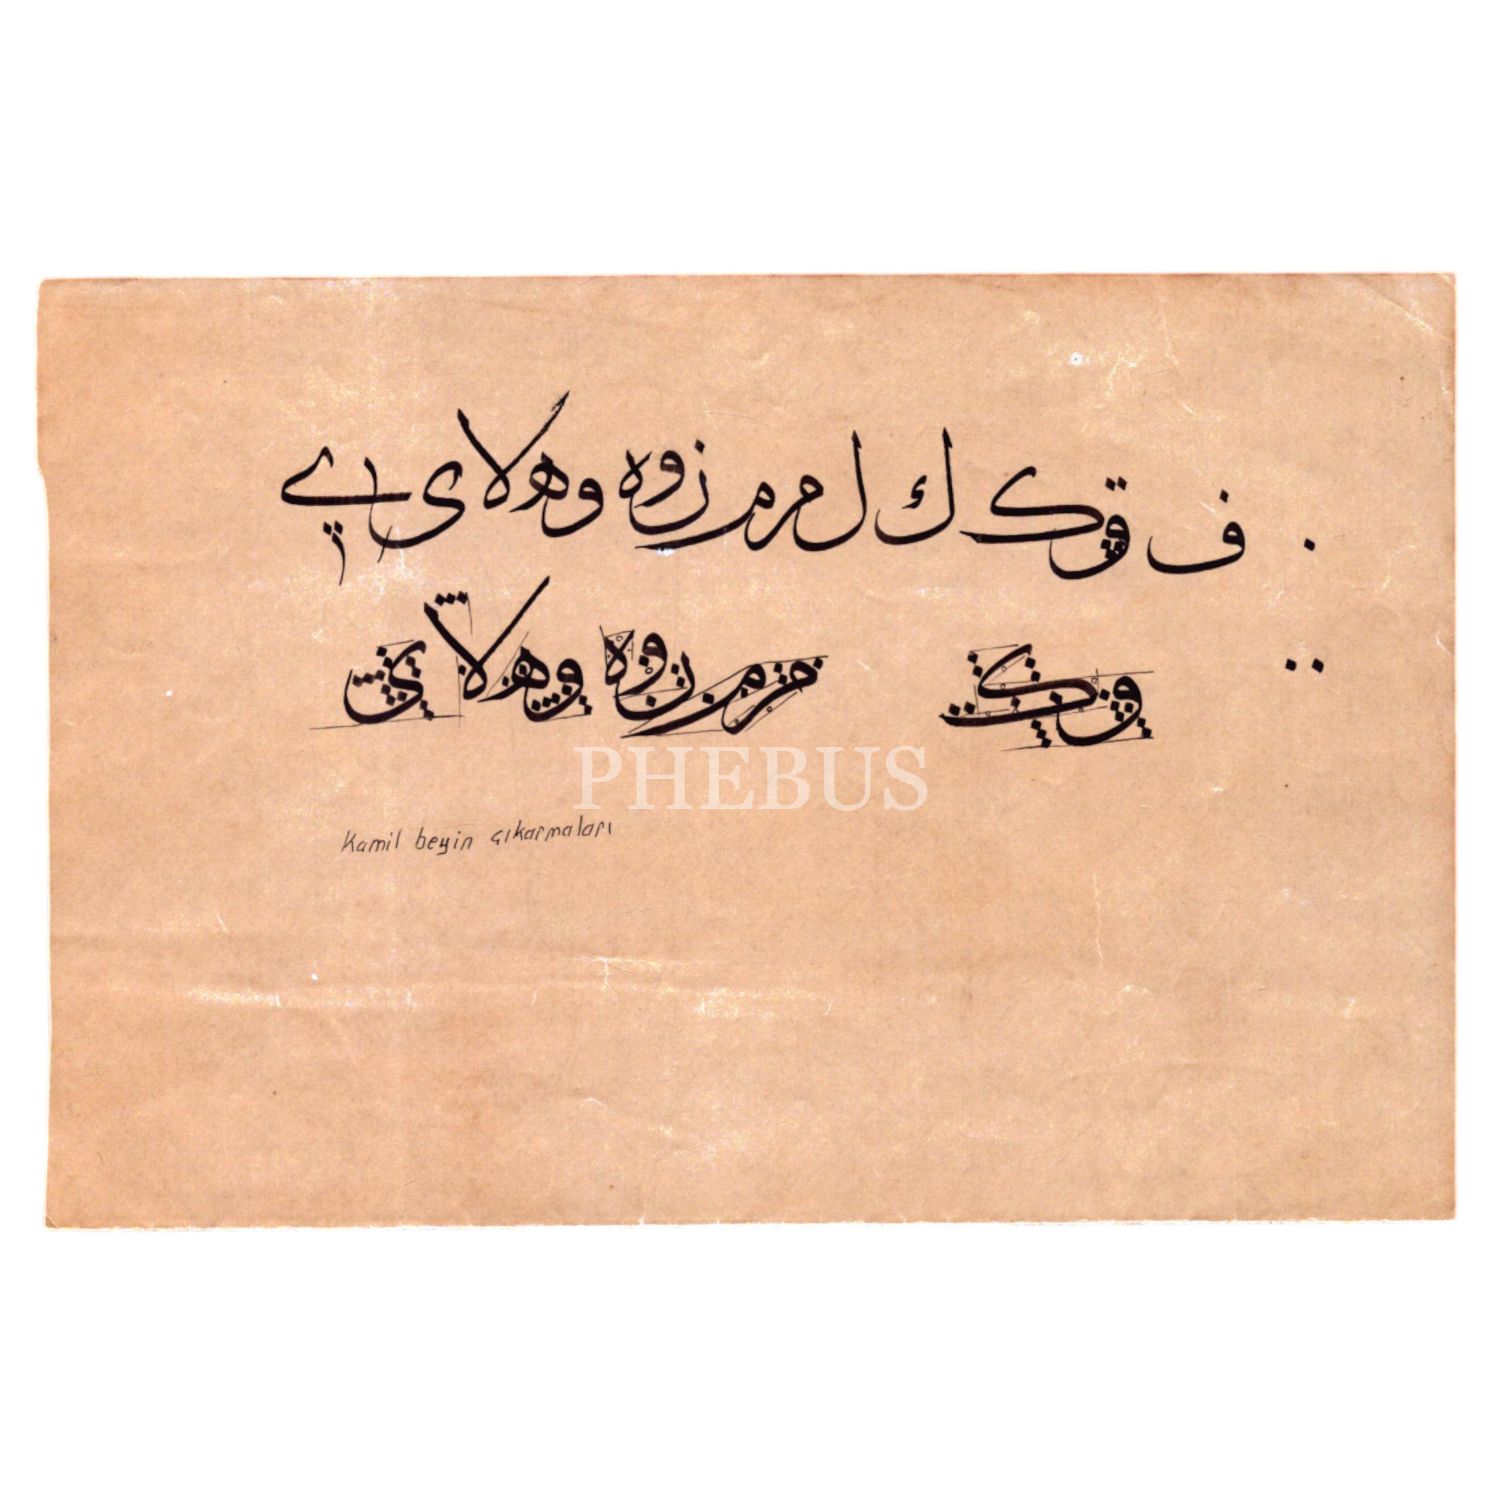 ف ق ك ك ل م م ن و ه و ه لا ى ے
ق ك م م ن و ه و ه لا ى
PHEBUS
Kamil beyin çıkarmaları